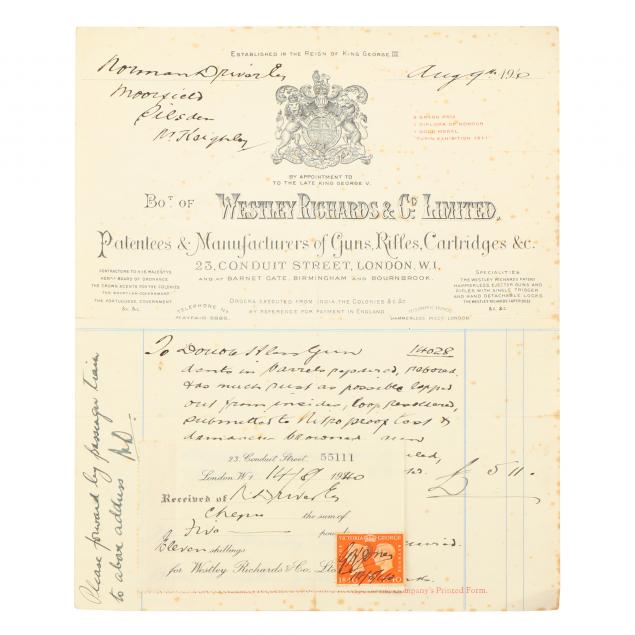 ESTABLISHED IN THE REIGN OF KING GEORGE III
Norman Driver Esq
Aug 9th 1940
Moorfield
Silsden
Nr Keighley
2 GRAND PRIX
1 DIPLOMA OF HONOUR
1 GOLD MEDAL
"TURIN EXHIBITION 1911"
BY APPOINTMENT TO
TO THE LATE KING GEORGE V.
BOT. OF WESTLEY RICHARDS & CO. LIMITED,
Patentees & Manufacturers of Guns, Rifles, Cartridges &c.
23, CONDUIT STREET, LONDON, W.1.
AND AT BARNET GATE, BIRMINGHAM AND BOURNBROOK.
CONTRACTORS TO H.M. MAJESTYS
HONBLE BOARD OF ORDNANCE
THE CROWN AGENTS FOR THE COLONIES
THE EGYPTIAN GOVERNMENT
THE PORTUGUESE GOVERNMENT
&c. &c.
SPECIALITIES.
THE WESTLEY RICHARDS PATENT
HAMMERLESS EJECTOR GUNS AND
RIFLES WITH SINGLE TRIGGER
AND HAND DETACHABLE LOCKS.
THE WESTLEY RICHARDS CARTRIDGES
&c. &c.
TELEPHONE NO.
MAYFAIR 5885.
ORDERS EXECUTED FROM INDIA THE COLONIES &c &c
BY REFERENCE FOR PAYMENT IN ENGLAND.
TELEGRAPHIC ADDRESS
HAMMERLESS WESDO LONDON
To Double Hless Gun 14028
dents in barrels repaired, rebored
& as much rust as possible lapped
out from insides, loop resoldered,
submitted to Nitro proof test &
damascus browned
Please forward by passenger train
to above address ND.
23, Conduit Street, 55111
London, W.1. 14/8/1940
£5 11.
Received of N Driver Esq
Cheque the sum of
Five
Eleven shillings
for Westley Richards & Co. Ltd
VICTORIA GEORGE
POSTAGE
Company's Printed Form.